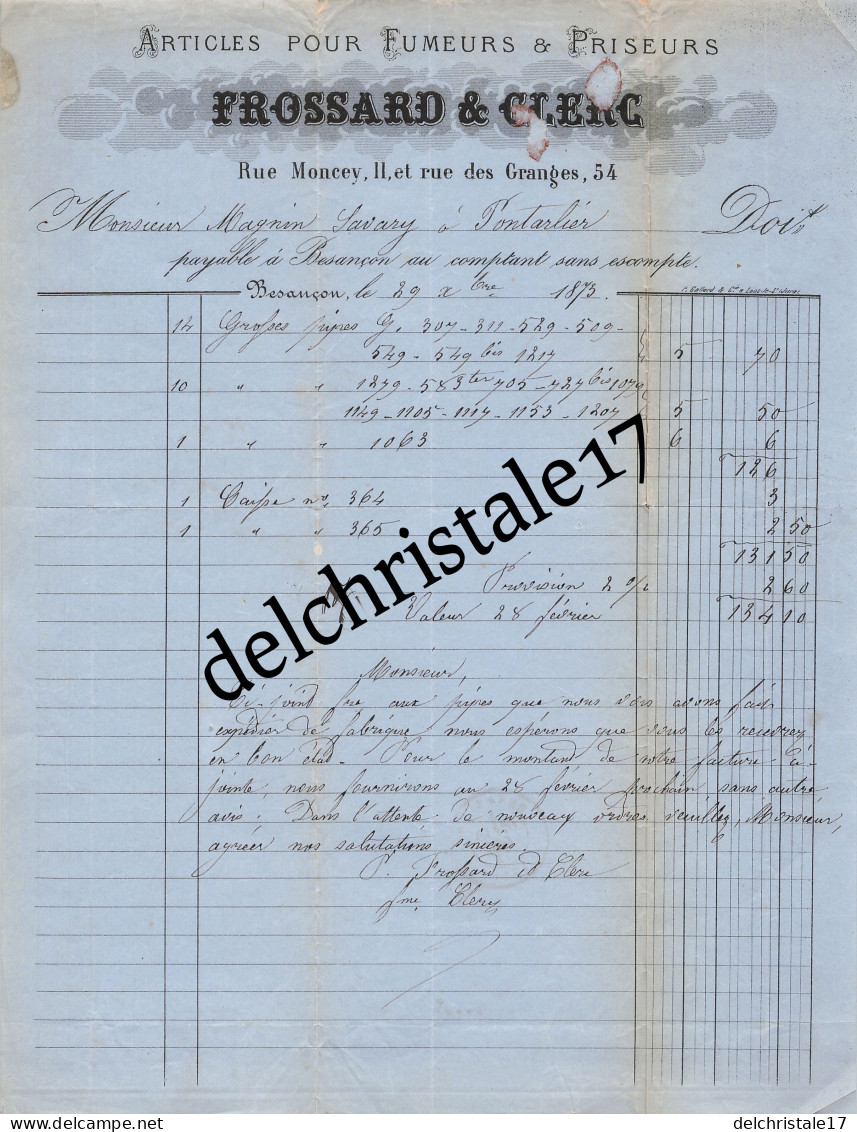 ARTICLES POUR FUMEURS & PRISEURS
FROSSARD & CLERC
Rue Moncey, 11, et rue des Granges, 54
Monsieur Magnin Savary à Pontarlier Doit
payable à Besançon au comptant sans escompte.
Besançon, le 29 Xbre 1873.
14 Grosses pipes G. 307 - 311 - 529 - 509 -
549 - 549 bis 1217 5 70
10 " " 1279 - 583 ter 705 - 727 bis 1079
1149 - 1105 - 1117 - 1153 - 1207 5 50
1 " " 1063 6 6
126
1 Caisse no, 364 3
1 " " 365 2 50
131 50
Provision 2 % 2 60
Valeur 28 février 134 10
Monsieur,
Ci-joint fre aux pipes que nous vous avons fait
expédier de fabrique nous espérons que vous les recevrez
en bon état. Pour le montant de notre facture ci-
jointe, nous fournirons au 28 février prochain sans autre
avis. Dans l'attente de nouveaux ordres veuillez, Monsieur,
agréer nos salutations sincères.
P. Frossard et Clerc
Clerc
delchristale17
delcampe.net
delchristale17